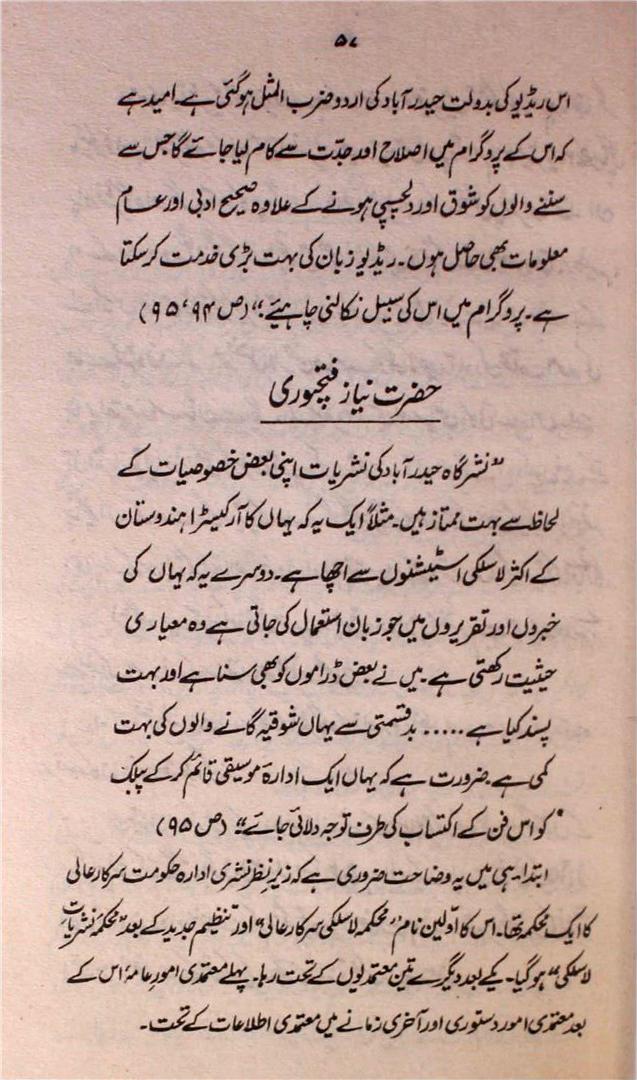 ۵۷
اس ریڈیو کی بدولت حیدر آباد کی اردو ضرب المثل ہو گئی ہے۔ امید ہے
کہ اس کے پروگرام میں اصلاح اور جدّت سے کام لیا جائے گا جس سے
سننے والوں کو شوق اور دلچسپی ہونے کے علاوہ صحیح ادبی اور عام
معلومات بھی حاصل ہوں۔ ریڈیو زبان کی بہت بڑی خدمت کر سکتا
ہے۔ پروگرام میں اس کی سبیل نکالنی چاہیئے؛“ (ص ۹۴، ۹۵)
حضرت نیاز فتحپوری
”نشر گاہ حیدر آباد کی نشریات اپنی بعض خصوصیات کے
لحاظ سے بہت ممتاز ہیں۔ مثلاً ایک یہ کہ یہاں کا آرکیسٹرا ہندوستان
کے اکثر لاسلکی اسٹیشنوں سے اچھا ہے۔ دوسرے یہ کہ یہاں کی
خبروں اور تقریروں میں جو زبان استعمال کی جاتی ہے وہ معیاری
حیثیت رکھتی ہے۔ میں نے بعض ڈراموں کو بھی سنا ہے اور بہت
پسند کیا ہے ..... بد قسمتی سے یہاں شوقیہ گانے والوں کی بہت
کمی ہے۔ ضرورت ہے کہ یہاں ایک ادارۂ موسیقی قائم کر کے پبلک
کو اس فن کے اکتساب کی طرف توجہ دلائی جائے“ (ص ۹۵)
ابتدا ہی میں یہ وضاحت ضروری ہے کہ زیر نظر نشری ادارہ حکومت سرکار عالی
کا ایک محکمہ تھا۔ اس کا اوّلین نام ”محکمہ لاسلکی سرکار عالی“ اور تنظیم جدید کے بعد ”محکمۂ نشریات
لاسلکی“ ہو گیا۔ یکے بعد دیگرے تین معتمدیوں کے تحت رہا۔ پہلے معتمدی امورِ عامہ اس کے
بعد معتمدی امور دستوری اور آخری زمانے میں معتمدی اطلاعات کے تحت۔